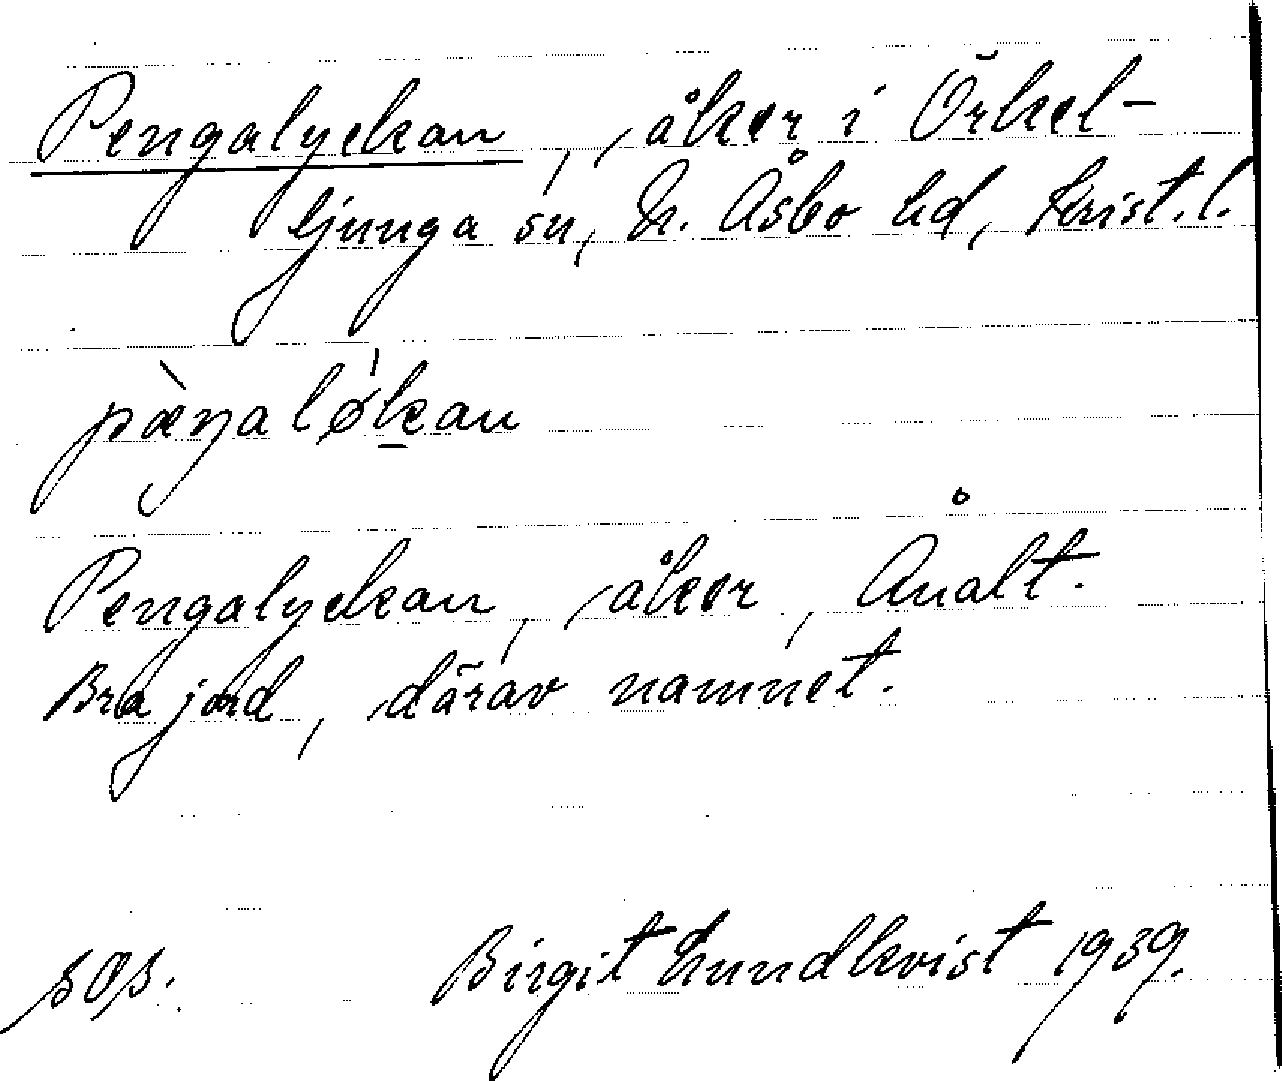 Pengalyckan, åker i Örkel-
ljunga sn, N. Åsbo hd, Krist. l.
pæŋaløkan
Pengalyckan, åker, Ånalt.
Bra jord, därav namnet.
Birgit Lundkvist 1939.